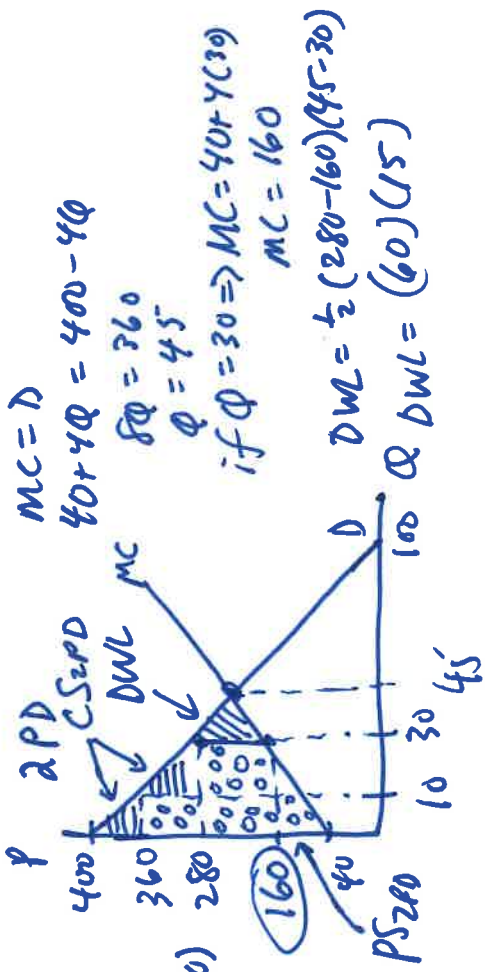 P
2PD
CS2PD
DWL
MC
400
360
280
160
40
PS2PD
10
30
45
100
Q
D
0)
MC = D
40+4Q = 400-4Q
8Q = 360
Q = 45
if Q = 30 => MC = 40+4(30)
MC = 160
DWL = 1/2 (280-160)(45-30)
DWL = (60)(15)